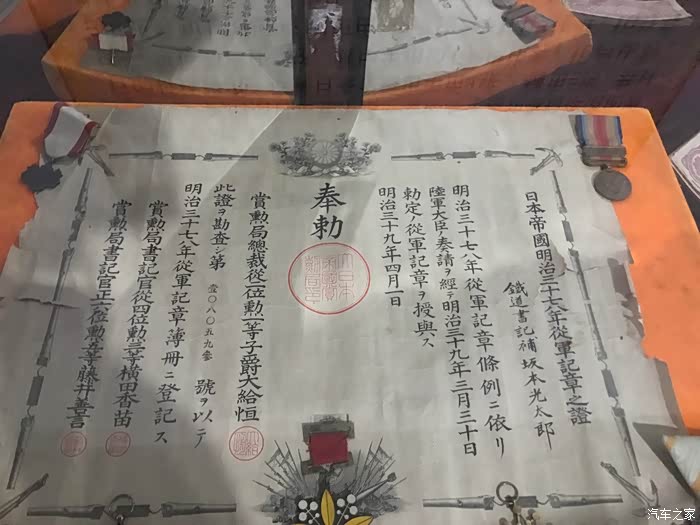 日本帝國明治三十七八年從軍記章之證
鐵道書記補 坂本光太郎
明治三十七八年從軍記章條例ニ依リ
陸軍大臣ノ奏請ヲ經テ明治三十九年三月三十日
勅定ノ從軍記章ヲ授與ス
明治三十九年四月一日
奉勅
賞勲局總裁從二位勲一等子爵大給恒
此證ヲ勘査シ第 壹〇八〇五九參 號ヲ以テ
明治三十七八年從軍記章簿冊ニ登記ス
賞勲局書記官從四位勲三等橫田香苗
賞勲局書記官正六位勲等藤井善言
汽车之家